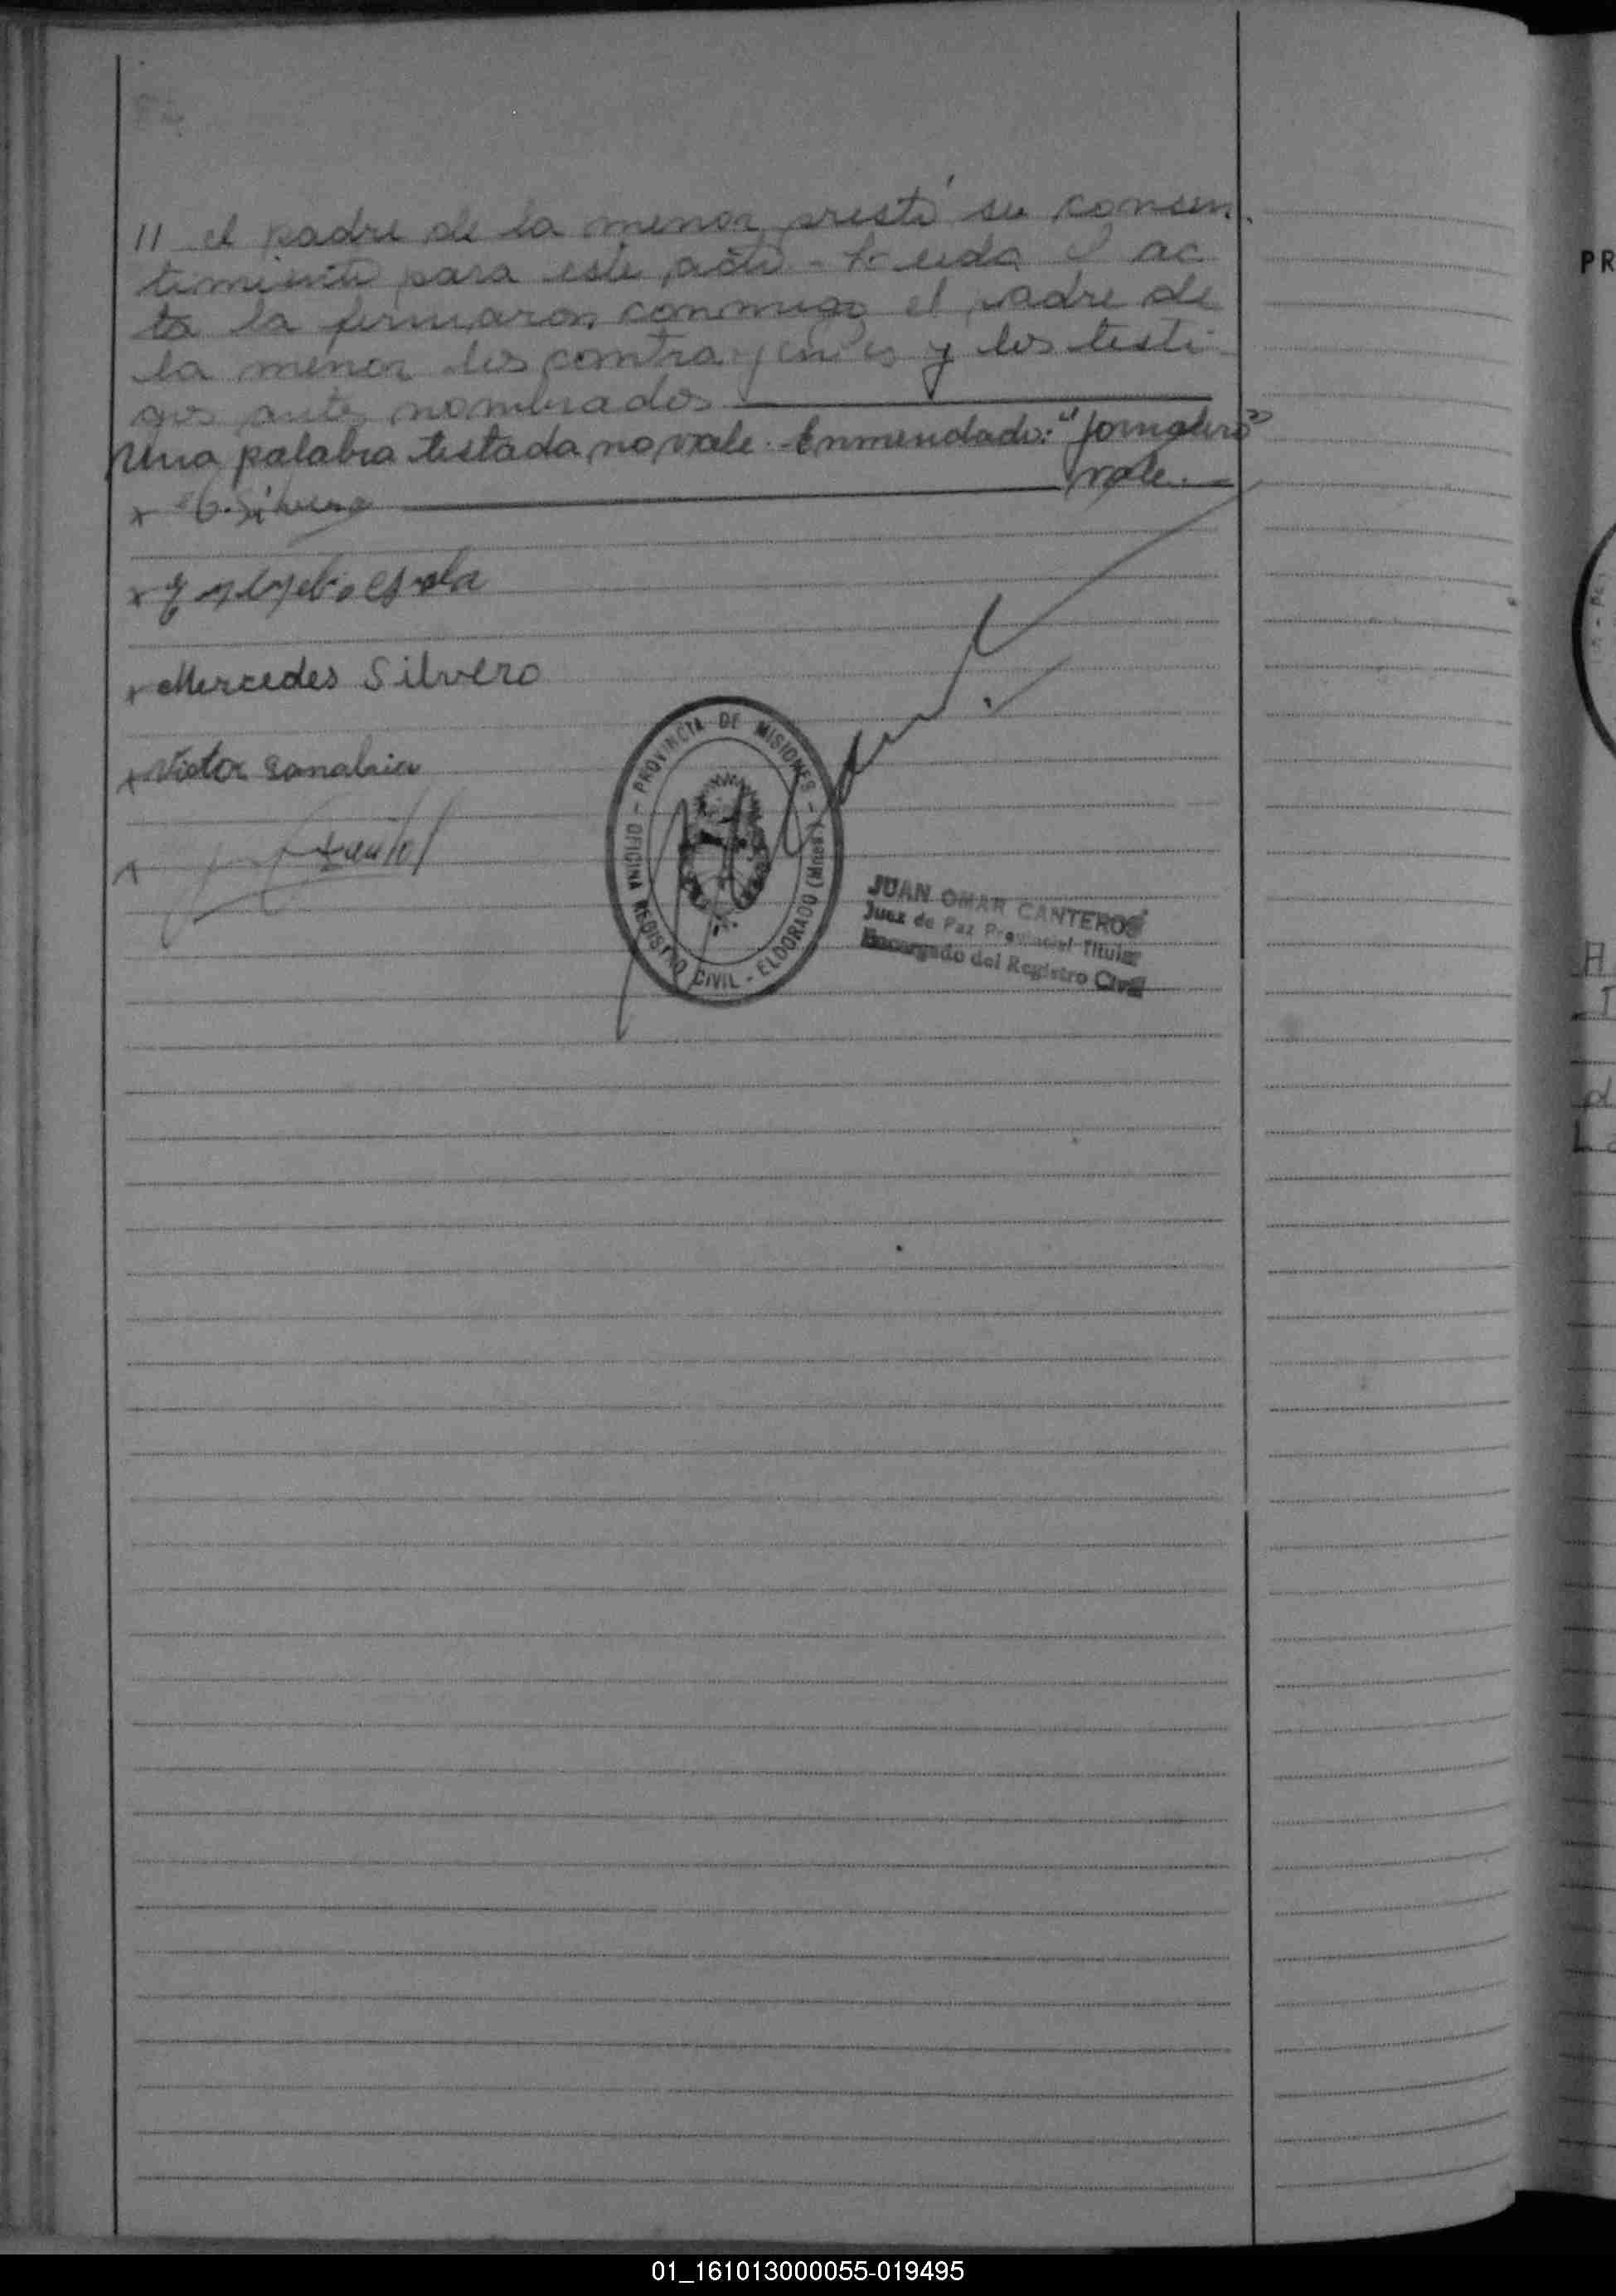 11 el padre de la menor prestó su consen
timiento para este acto - Leida el ac
ta la firmaron conmigo el padre de
la menor los contrayentes y los testi
gos antes nombrados
Una palabra testada no vale. Enmendado: "jornalero"
vale.
x G. Silvero
x
x Mercedes Silvero
x Victor Sanabria
x
- PROVINCIA DE MISIONES -
OFICINA REGISTRO CIVIL - ELDORADO (Mnes.)
JUAN OMAR CANTEROS
Juez de Paz Provincial Titular
Encargado del Registro Civil
PR
A
I
d
L
01_161013000055-019495